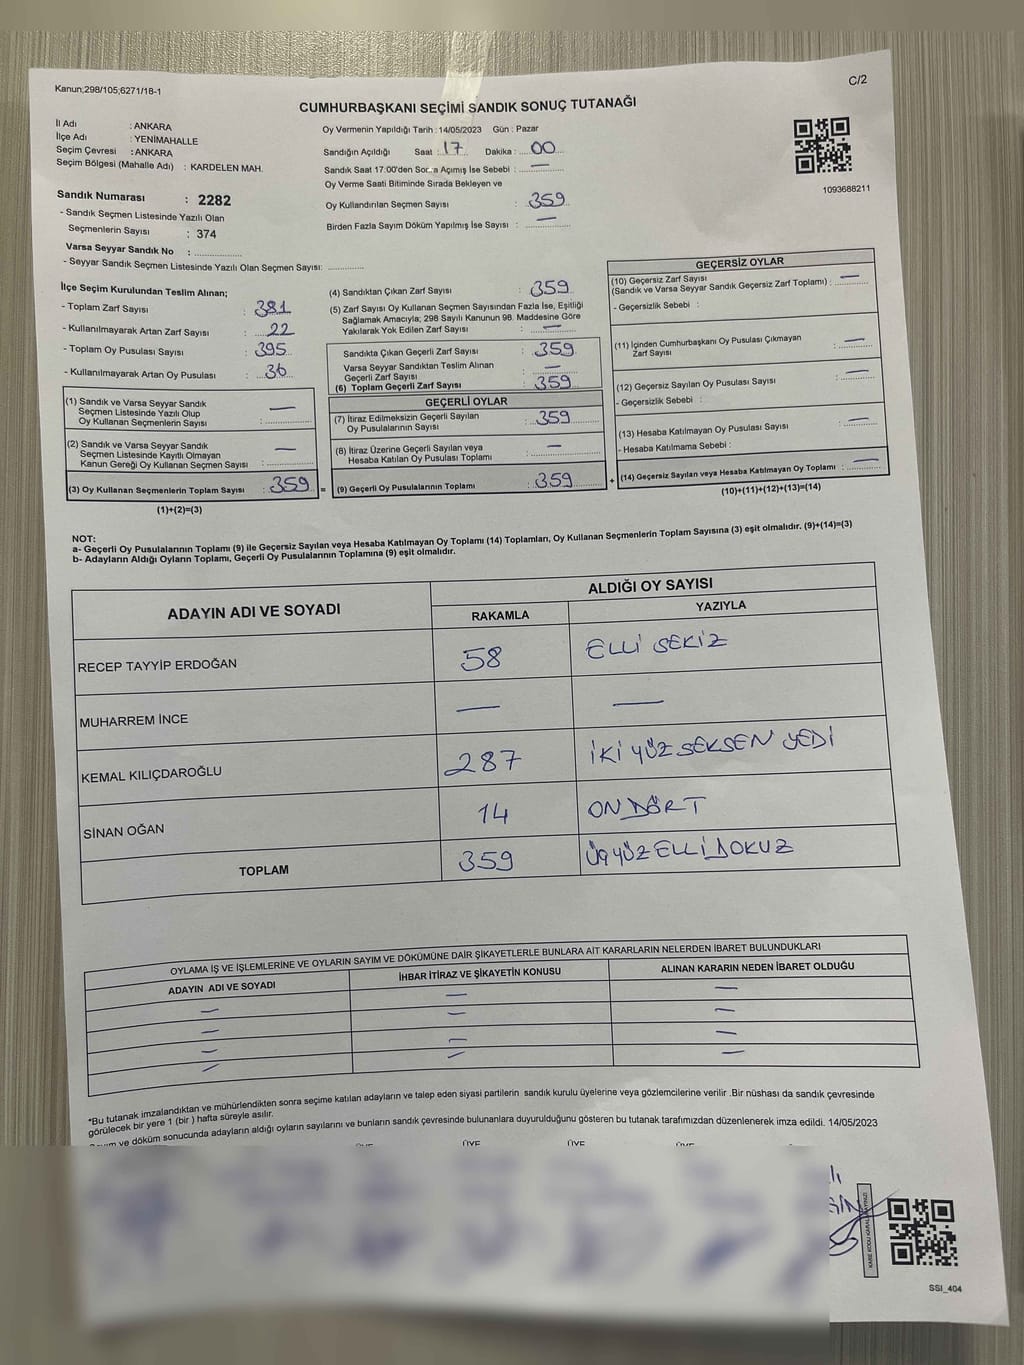 Kanun;298/105;6271/18-1
C/2
CUMHURBAŞKANI SEÇİMİ SANDIK SONUÇ TUTANAĞI
İl Adı : ANKARA
İlçe Adı : YENİMAHALLE
Seçim Çevresi : ANKARA
Seçim Bölgesi (Mahalle Adı) : KARDELEN MAH.
Oy Vermenin Yapıldığı Tarih : 14/05/2023 Gün : Pazar
Sandığın Açıldığı Saat : 17 Dakika : 00
Sandık Saat 17:00'den Sonra Açımış İse Sebebi : —
Oy Verme Saati Bitiminde Sırada Bekleyen ve
Oy Kullandırılan Seçmen Sayısı : 359
Birden Fazla Sayım Döküm Yapılmış İse Sayısı : —
1093688211
Sandık Numarası : 2282
- Sandık Seçmen Listesinde Yazılı Olan
Seçmenlerin Sayısı : 374
Varsa Seyyar Sandık No : ..............
- Seyyar Sandık Seçmen Listesinde Yazılı Olan Seçmen Sayısı: ............
İlçe Seçim Kurulundan Teslim Alınan;
- Toplam Zarf Sayısı : 381
- Kullanılmayarak Artan Zarf Sayısı : 22
- Toplam Oy Pusulası Sayısı : 395
- Kullanılmayarak Artan Oy Pusulası : 36
(1) Sandık ve Varsa Seyyar Sandık
Seçmen Listesinde Yazılı Olup
Oy Kullanan Seçmenlerin Sayısı : —
(2) Sandık ve Varsa Seyyar Sandık
Seçmen Listesinde Kayıtlı Olmayan
Kanun Gereği Oy Kullanan Seçmen Sayısı : —
(3) Oy Kullanan Seçmenlerin Toplam Sayısı : 359 =
(1)+(2)=(3)
(4) Sandıktan Çıkan Zarf Sayısı : 359
(5) Zarf Sayısı Oy Kullanan Seçmen Sayısından Fazla İse, Eşitliği
Sağlamak Amacıyla; 298 Sayılı Kanunun 98. Maddesine Göre
Yakılarak Yok Edilen Zarf Sayısı : —
Sandıkta Çıkan Geçerli Zarf Sayısı : 359
Varsa Seyyar Sandıktan Teslim Alınan
Geçerli Zarf Sayısı : —
(6) Toplam Geçerli Zarf Sayısı : 359
GEÇERLİ OYLAR
(7) İtiraz Edilmeksizin Geçerli Sayılan
Oy Pusulalarının Sayısı : 359
(8) İtiraz Üzerine Geçerli Sayılan veya
Hesaba Katılan Oy Pusulası Toplamı : —
(9) Geçerli Oy Pusulalarının Toplamı : 359 +
GEÇERSİZ OYLAR
(10) Geçersiz Zarf Sayısı
(Sandık ve Varsa Seyyar Sandık Geçersiz Zarf Toplamı) : —
- Geçersizlik Sebebi :
(11) İçinden Cumhurbaşkanı Oy Pusulası Çıkmayan
Zarf Sayısı : —
(12) Geçersiz Sayılan Oy Pusulası Sayısı : —
- Geçersizlik Sebebi :
(13) Hesaba Katılmayan Oy Pusulası Sayısı : —
- Hesaba Katılmama Sebebi :
(14) Geçersiz Sayılan veya Hesaba Katılmayan Oy Toplamı : —
(10)+(11)+(12)+(13)=(14)
NOT:
a- Geçerli Oy Pusulalarının Toplamı (9) ile Geçersiz Sayılan veya Hesaba Katılmayan Oy Toplamı (14) Toplamları, Oy Kullanan Seçmenlerin Toplam Sayısına (3) eşit olmalıdır. (9)+(14)=(3)
b- Adayların Aldığı Oyların Toplamı, Geçerli Oy Pusulalarının Toplamına (9) eşit olmalıdır.
ADAYIN ADI VE SOYADI
ALDIĞI OY SAYISI
RAKAMLA YAZIYLA
RECEP TAYYİP ERDOĞAN 58 ELLİ SEKİZ
MUHARREM İNCE — —
KEMAL KILIÇDAROĞLU 287 İKİ YÜZ SEKSEN YEDİ
SİNAN OĞAN 14 ON DÖRT
TOPLAM 359 ÜÇ YÜZ ELLİ DOKUZ
OYLAMA İŞ VE İŞLEMLERİNE VE OYLARIN SAYIM VE DÖKÜMÜNE DAİR ŞİKAYETLERLE BUNLARA AİT KARARLARIN NELERDEN İBARET BULUNDUKLARI
ADAYIN ADI VE SOYADI İHBAR İTİRAZ VE ŞİKAYETİN KONUSU ALINAN KARARIN NEDEN İBARET OLDUĞU
— — —
— — —
— — —
— — —
*Bu tutanak imzalandıktan ve mühürlendikten sonra seçime katılan adayların ve talep eden siyasi partilerin sandık kurulu üyelerine veya gözlemcilerine verilir .Bir nüshası da sandık çevresinde
görülecek bir yere 1 (bir ) hafta süreyle asılır.
ve döküm sonucunda adayların aldığı oyların sayılarını ve bunların sandık çevresinde bulunanlara duyurulduğunu gösteren bu tutanak tarafımızdan düzenlenerek imza edildi. 14/05/2023
ÜYE ÜYE ÜYE
SSI_404